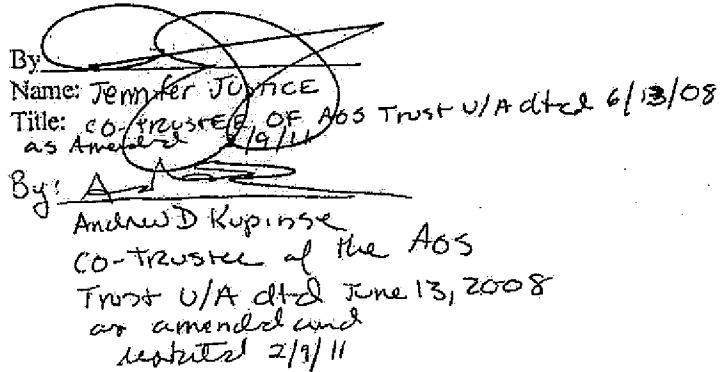 By
Name: Jennifer Justice
Title: CO-TRUSTEE OF AOS Trust U/A dtd 6/13/08
as Amended 2/9/11
By:
Andrew D Kupinse
CO-TRUSTEE of the AOS
Trust U/A dtd June 13, 2008
as amended and
restated 2/9/11